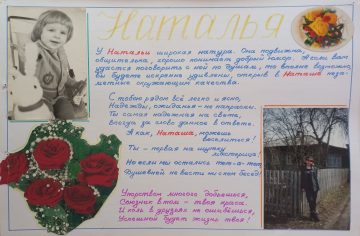 НАТАЛЬЯ
У Натальи широкая натура. Она подвижна,
общительна, хорошо понимает добрый юмор. А если вам
удастся поговорить с ней по душам, то вполне возможно,
вы будете искренне удивлены, открыв в Наташе неза-
метные окружающим качества.
С тобою рядом всё легко и ясно,
Надежды, ожидания - не напрасны.
Ты самая надежная на свете,
Всегда за слово данное в ответе.
А как, Наташа, можешь
веселиться!
Ты - первая на шутку
мастерица!
Но если мы остались тет-а-тет,
Душевней не вести ни с кем бесед!
Упорством многого добьешься,
Союзник в том - твоя краса.
И коль в друзьях не ошибёшься,
Успешной будет жизнь твоя!